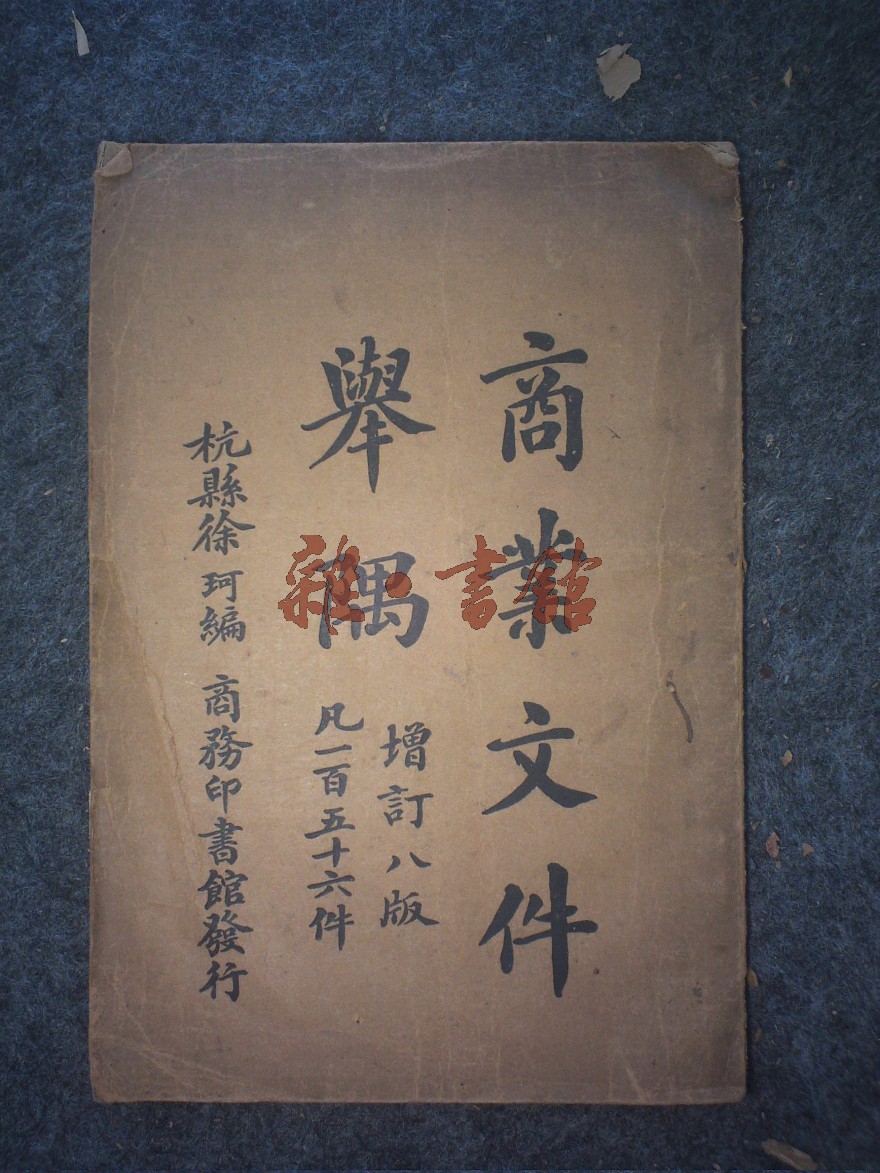 商業文件
舉隅
增訂八版
凡一百五十六件
杭縣徐珂編 商務印書館發行
雜·書館